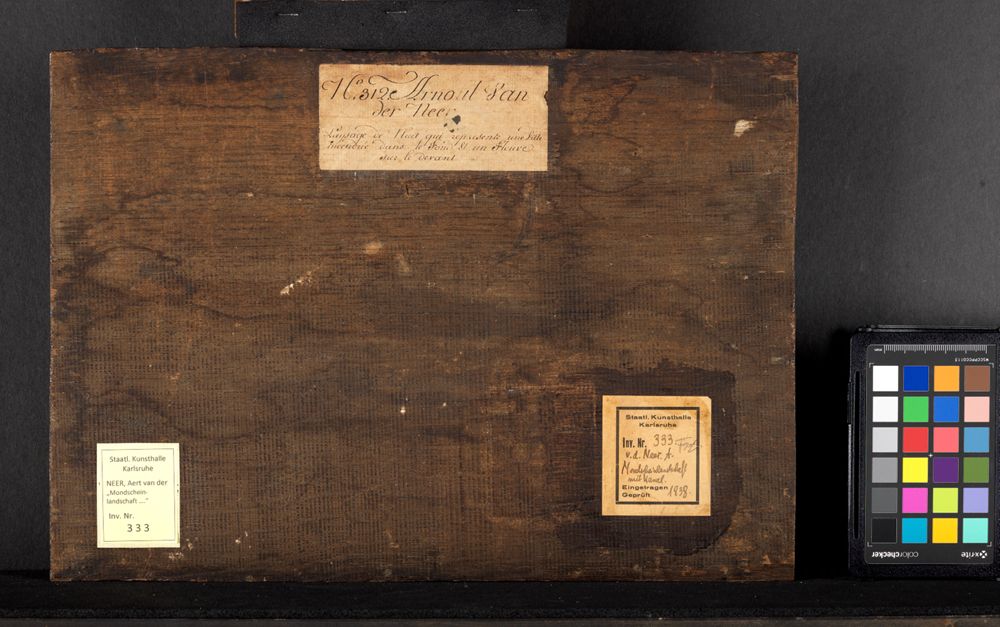 No. 312. Arnoul Van
der Neer
Paisage de Nuit qui represente une Ville
incendiée dans le Fond et un Fleuve
sur le devant
Staatl. Kunsthalle
Karlsruhe
NEER, Aert van der
„Mondschein-
landschaft ...."
Inv. Nr.
333
Staatl. Kunsthalle
Karlsruhe
Inv. Nr. 333
v.d. Neer. A.
Mondscheinlandschaft
mit Kanal.
Eingetragen
Geprüft 1938.
MSCCPPCC0113
mm
x-rite
colorchecker